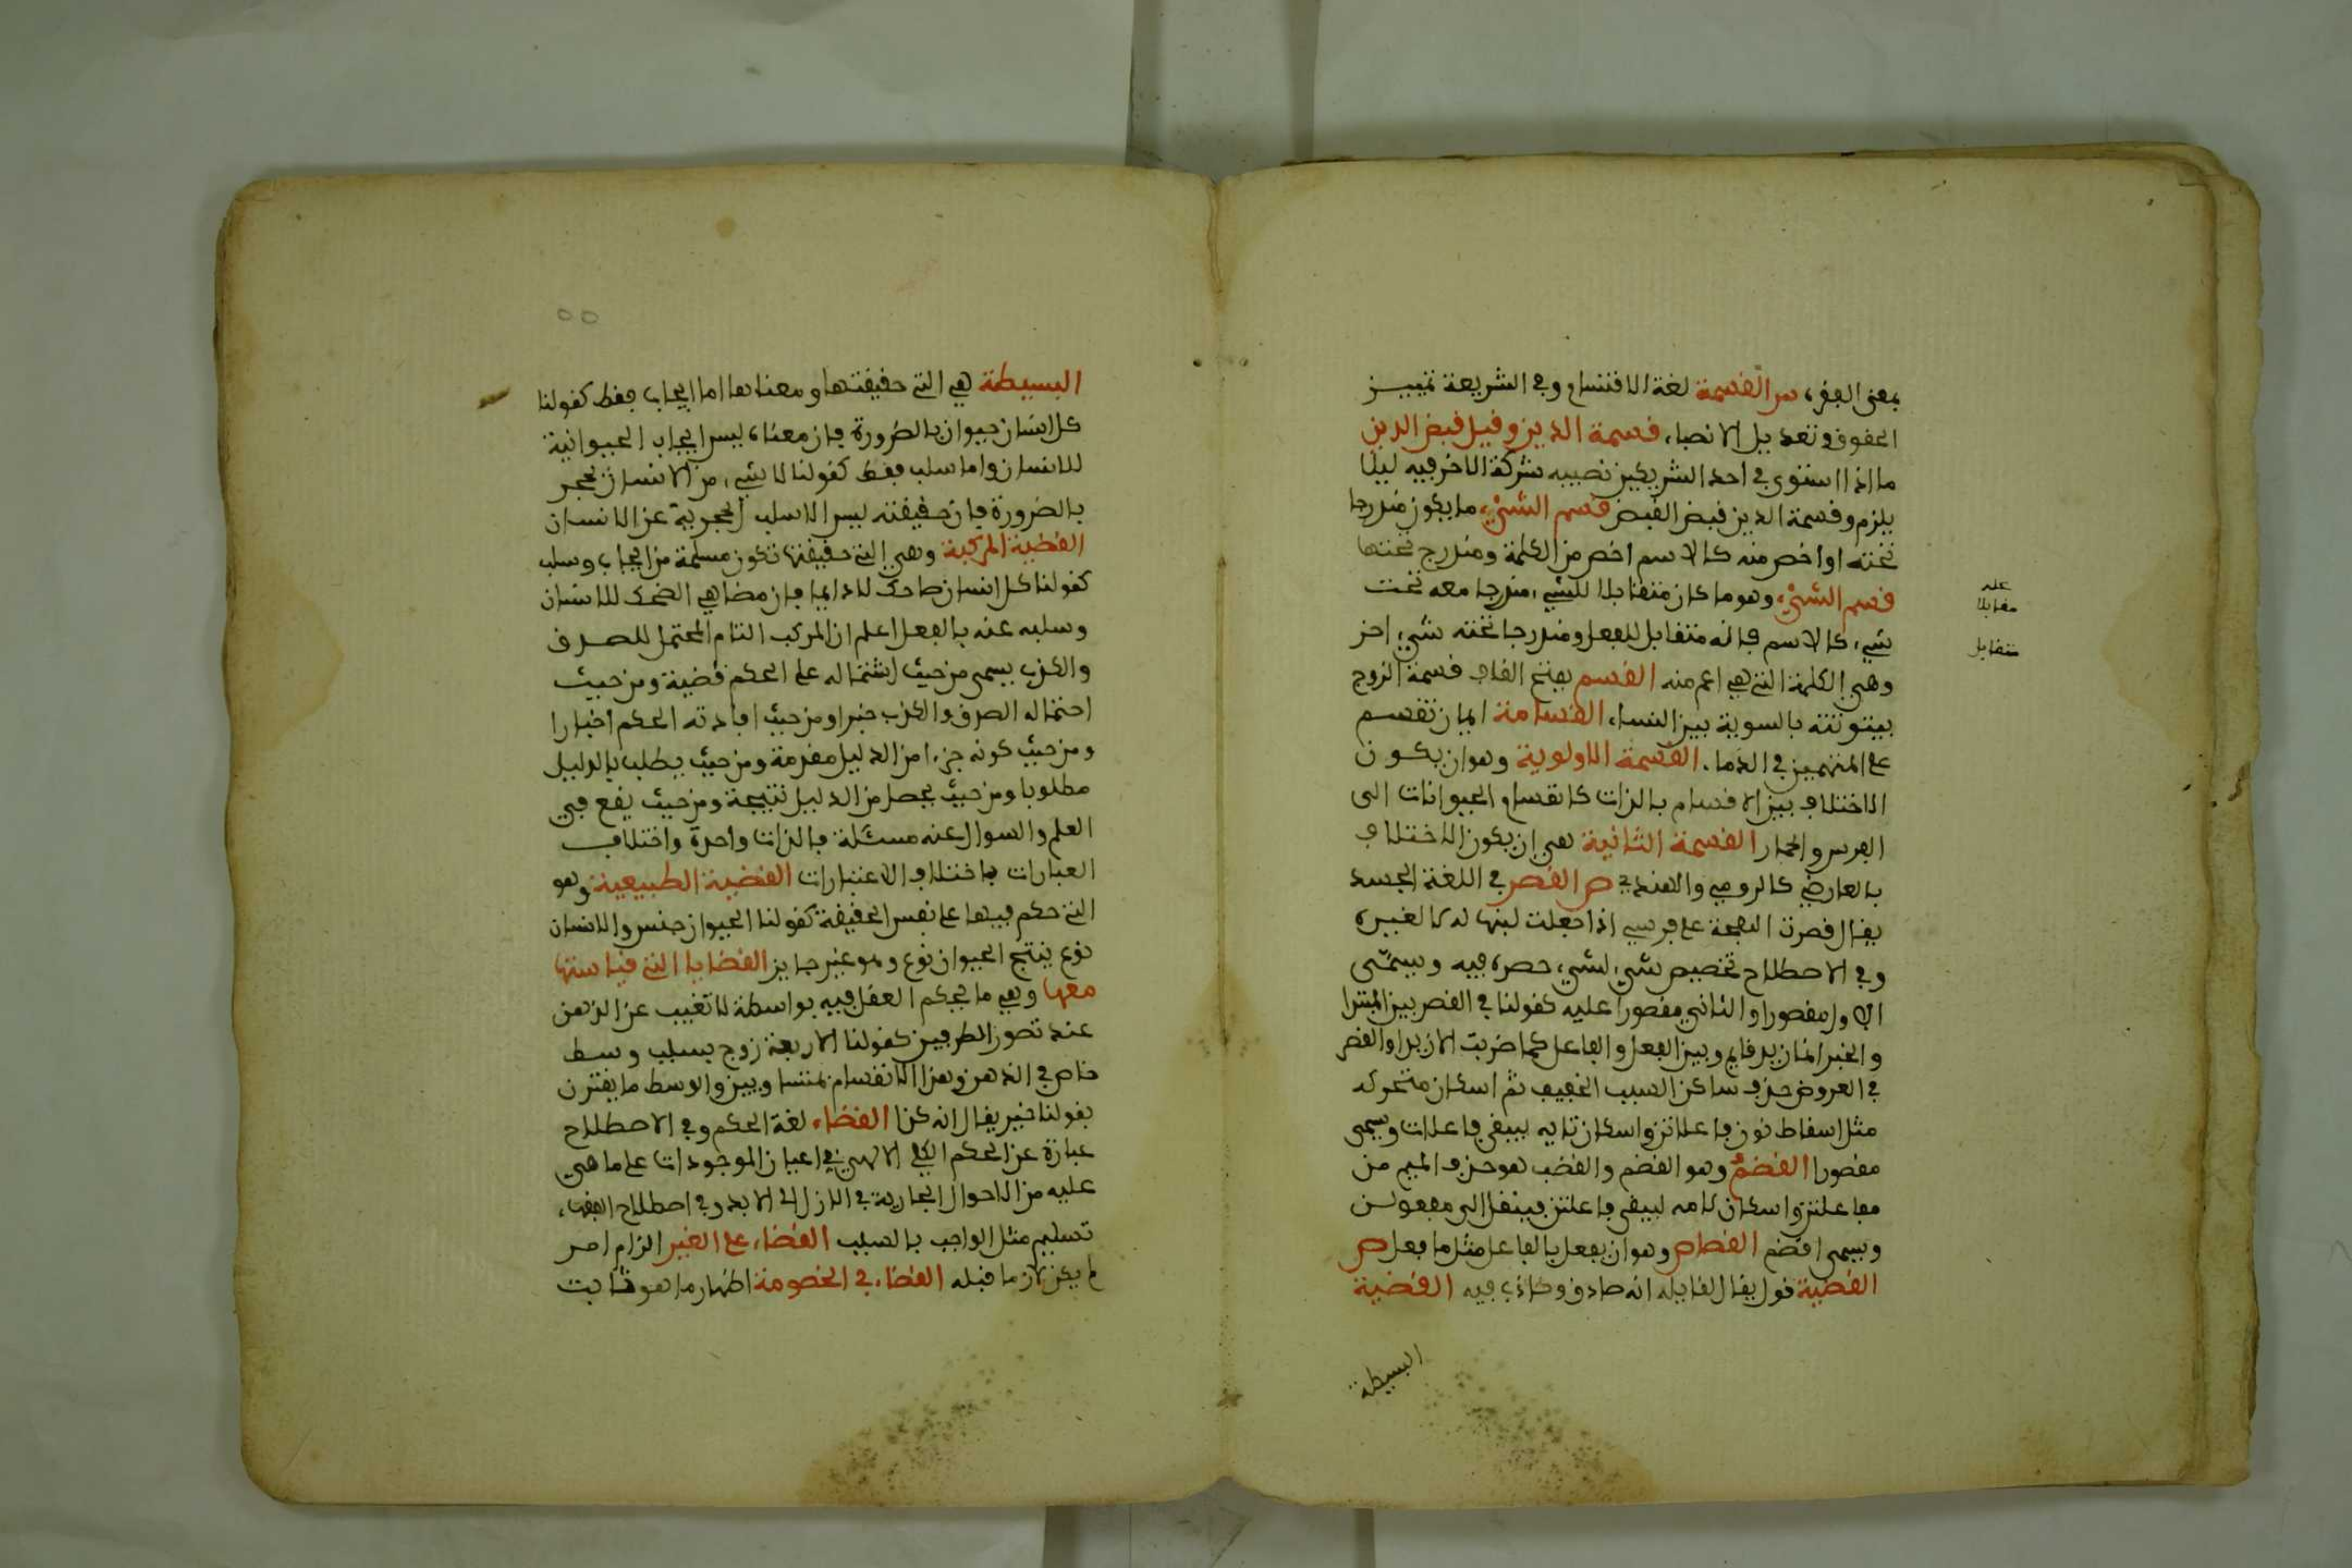 بمعنى الفقراء س القسمة لغة الاقتسام وفي الشريعة تمييز
الحقوق وتعديل الانصباء قسمة الدين وقيل قبض الدين
ما اذا استوى في احد الشريكين نصيبه شركة الاخر فيه ليلا
يلزم وقسمة الدين قبض القبض قسم الشيء ما يكون مندرجا
تحته او اخص منه كالاسم اخص من الكلمة ومندرج تحتها
قسيم الشيء وهو ما كان متقابلا للشيء مندرجا معه تحت
شيء كالاسم فانه متقابل للفعل ومندرجا تحته شيء اخر
وهي الكلمة التي هي اعم منه القسم بفتح القاف قسمة الزوج
بيتوتته بالسوية بين النساء القسامة ايمان تقسم
على المتهمين في الدماء القسمة الاولوية وهو ان يكون
الاختلاف بين الاقسام بالذات كانقسام الحيوانات الى
الفرس والحمار القسمة الثانية هي ان يكون الاختلاف
بالعارض كالرومي والهندي ص القصر في اللغة الحبس
يقال قصرت اللقحة على فرسي اذا جعلت لبنها له لا لغيره
وفي الاصطلاح تخصيص شيء لشيء حصره فيه ويسمى
الاول مقصورا والثاني مقصورا عليه كقولنا في القصر بين المبتدا
والخبر انما زيد قايم وبين الفعل والفاعل كما ضربت الا زيدا والقصر
في العروض حذف ساكن السبب الخفيف ثم اسكان متحركه
مثل اسقاط نون فاعلاتن واسكان تايه ليبقى فاعلات ويسمى
مقصورا القضم وهو القضم والقضب هو حذف الميم من
مفاعلتن واسكان لامه ليبقى فاعلتن فينقل الى مفعولن
ويسمى اقضم القصاص وهو ان يفعل بالفاعل مثل ما فعل ص
القضية قول يقال لقايله انه صادق وكاذب فيه القضية
البسيطة
علم
مقابلا
متقابل
٥٥
البسيطة هي التي حقيقتها ومعناها اما ايجاب فقط كقولنا
كل انسان حيوان بالضرورة فان معناه ليس ايجاب الحيوانية
للانسان واما سلب فقط كقولنا لا شيء من الانسان بحجر
بالضرورة فان حقيقته ليس الا سلب الحجرية عن الانسان
القضية المركبة وهي التي حقيقتها تكون مسلمة من ايجاب وسلب
كقولنا كل انسان ضاحك لا دايما فان مضاهي الضحك للانسان
وسلبه عنه بالفعل اعلم ان المركب التام المحتمل للصدق
والكذب يسمى من حيث اشتماله على الحكم قضية ومن حيث
احتماله الصدق والكذب خبرا ومن حيث افادته الحكم اخبارا
ومن حيث كونه جزءا من الدليل مقدمة ومن حيث يطلب بالدليل
مطلوبا ومن حيث يحصل من الدليل نتيجة ومن حيث يقع في
العلم والسوال عنه مسئلة فالذات واحدة واختلاف
العبارات باختلاف الاعتبارات القضية الطبيعية وهو
التي حكم فيها على نفس الحقيقة كقولنا الحيوان جنس والانسان
نوع ينتج الحيوان نوع وهو غير جايز القضايا التي قياستها
معها وهي ما يحكم العقل فيه بواسطة لا تغيب عن الذهن
عند تصور الطرفين كقولنا الاربعة زوج بسبب وسط
خاص في الذهن وهذا الانقسام بمتساويين والوسط ما يقترن
بقولنا خبر يقال انه كذا القضاء لغة الحكم وفي الاصطلاح
عبارة عن الحكم الكلي الالهي في اعيان الموجودات على ما هي
عليه من الاحوال الجارية في الازل الى الابد وفي اصطلاح الفقهاء
تسليم مثل الواجب بالسبب القضاء على الغير الزام امر
لم يكن لازما قبله القضاء في الخصومة اظهار ما هو ثابت